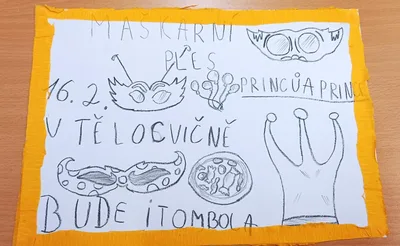 MAŠKARNÍ
PLES
PRINCŮ A PRINC
16.2.
V TĚLOCVIČNĚ
BUDE I TOMBOLA